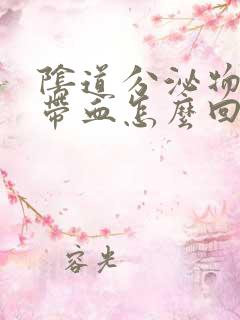 陰道分泌物
帶血怎麼回
容光